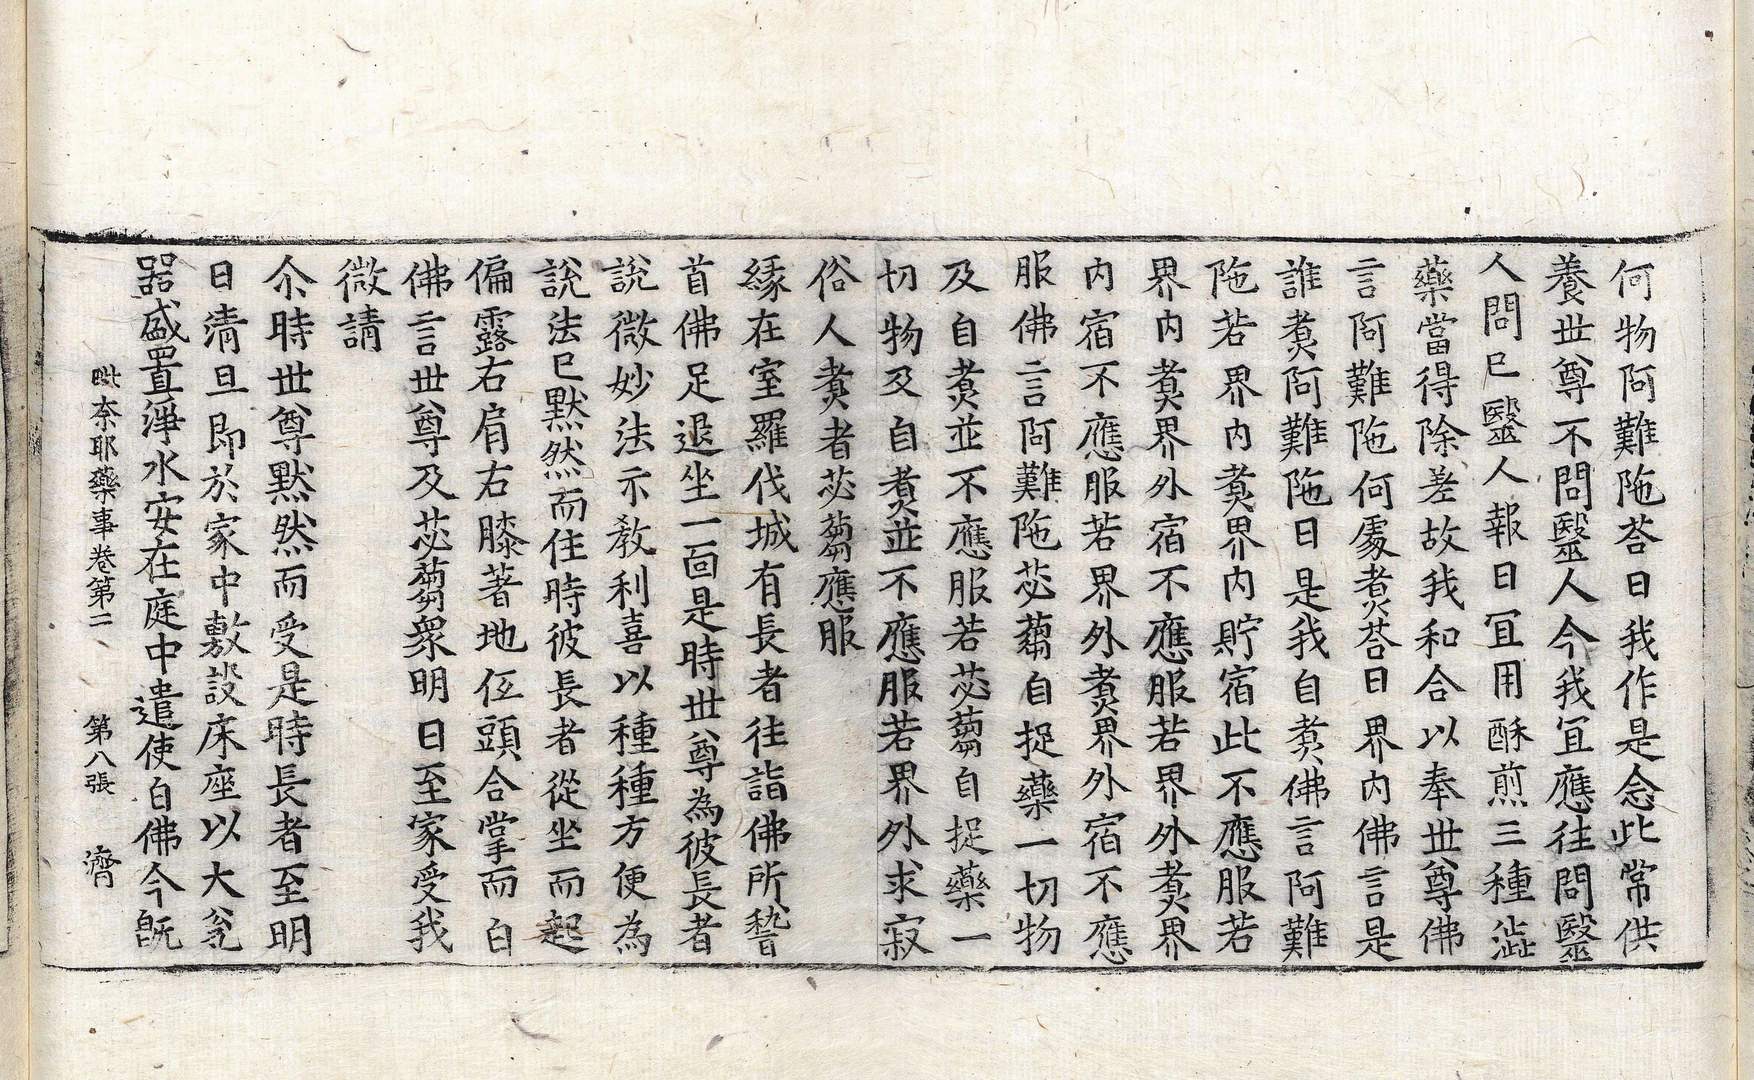 何物阿難陁荅曰我作是念此常供
養世尊不問醫人今我冝應往問醫
人問已醫人報曰冝用酥煎三種澁
藥當得除差故我和合以奉世尊佛
言阿難陁何處煮荅曰界内佛言是
誰煮阿難陁曰是我自煮佛言阿難
陁若界内煮界内貯宿此不應服若
界内煮界外宿不應服若界外煮界
内宿不應服若界外煮界外宿不應
服佛言阿難陁苾蒭自捉藥一切物
及自煮並不應服若苾蒭自捉藥一
切物及自煮並不應服若界外求寂
俗人煮者苾蒭應服
緣在室羅伐城有長者往詣佛所稽
首佛足退坐一面是時世尊為彼長者
說微妙法示教利喜以種種方便為
說法已默然而住時彼長者從坐而起
偏露右肩右膝著地伍頭合掌而白
佛言世尊及苾蒭衆明日至家受我
微請
尒時世尊默然而受是時長者至明
日清旦即於家中敷設床座以大瓮
器盛置淨水安在庭中遣使白佛今旣
毗奈耶藥事卷第二　第八張　濟